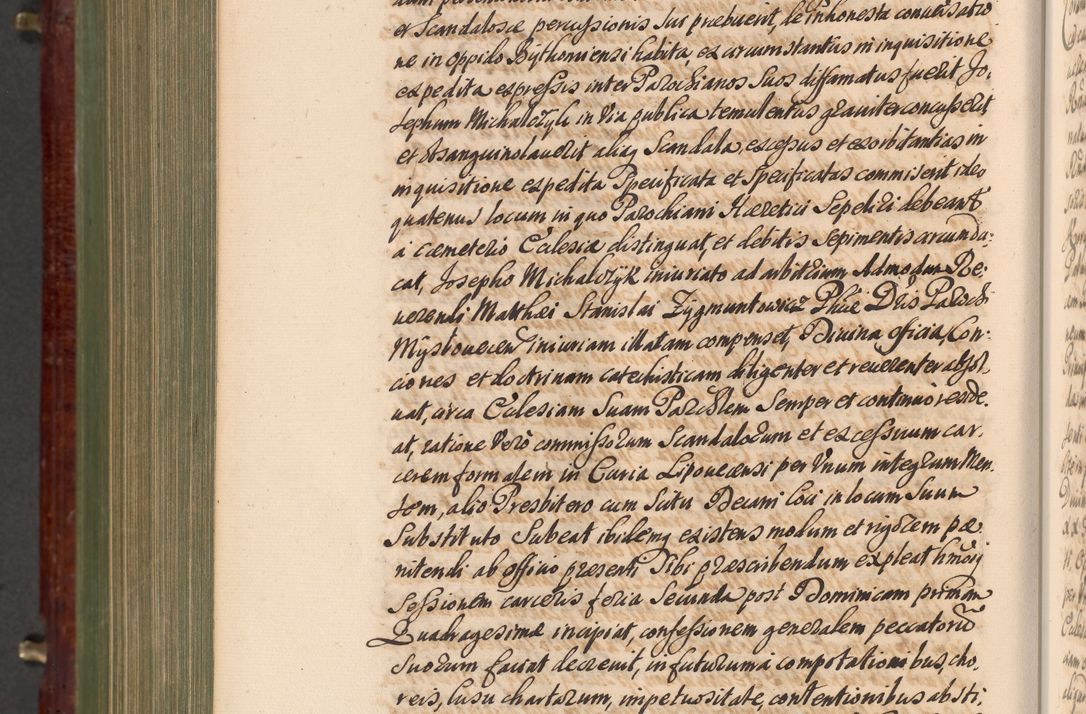 et Scandalosæ percussionis Jus præbuerit, de Inhonesta conuersatio
ne in oppido Bythomiensi habita, ex circumstantiis in inquisitione
expedita expressis inter Parochianos Suos diffamatus fuerit Jo,
sephum Michalczyk in Via publica temulentus grauiter concusserit
et exsanguinolauerit aliaq Scandala, excessus et exorbitantias in
inquisitione expedita Specificata et Specificatas commiserit ideo
quatenus locum in quo Parochiani Hæretici Sepeliri debeant
a cæmeterio Ecclesiæ distinguat, et debitis Sepimentis circumda:
cat, Josepho Michalczyk iniuriato ad arbitrium Admodum Re:
uerendi Matthæi Stanislai Zygmuntowicz Phiæ Dris Parochi
iniuriam illatam compenset, Diuina officia, Con:
ciones et doctrinam catechisticam diligenter et reuerenter absol,
uat, circa Ecclesiam Suam Parochlem Semper et continuo reside.
at, ratione Vero commissorum Scandalorum et excessuum car,
cerem formalem in Curia Lipouecensi per Vnum integrum Men,
sem, alio Presbitero cum Scitu Decani loci in locum Suum
Substituto Subeat ibidemq existens modum et rigorem pæ
nitendi ab officio præsenti Sibi præscribendum expleat hmoiq
Sessionem carceris feria Secunda post Dominicam primam
Quadragesimæ incipiat, confessionem generalem peccatorū
Suorum faciat decreuit, in futurum a compotationibus, cho,
reis, lusu chartarum, impetuositate, contentionibus absti,